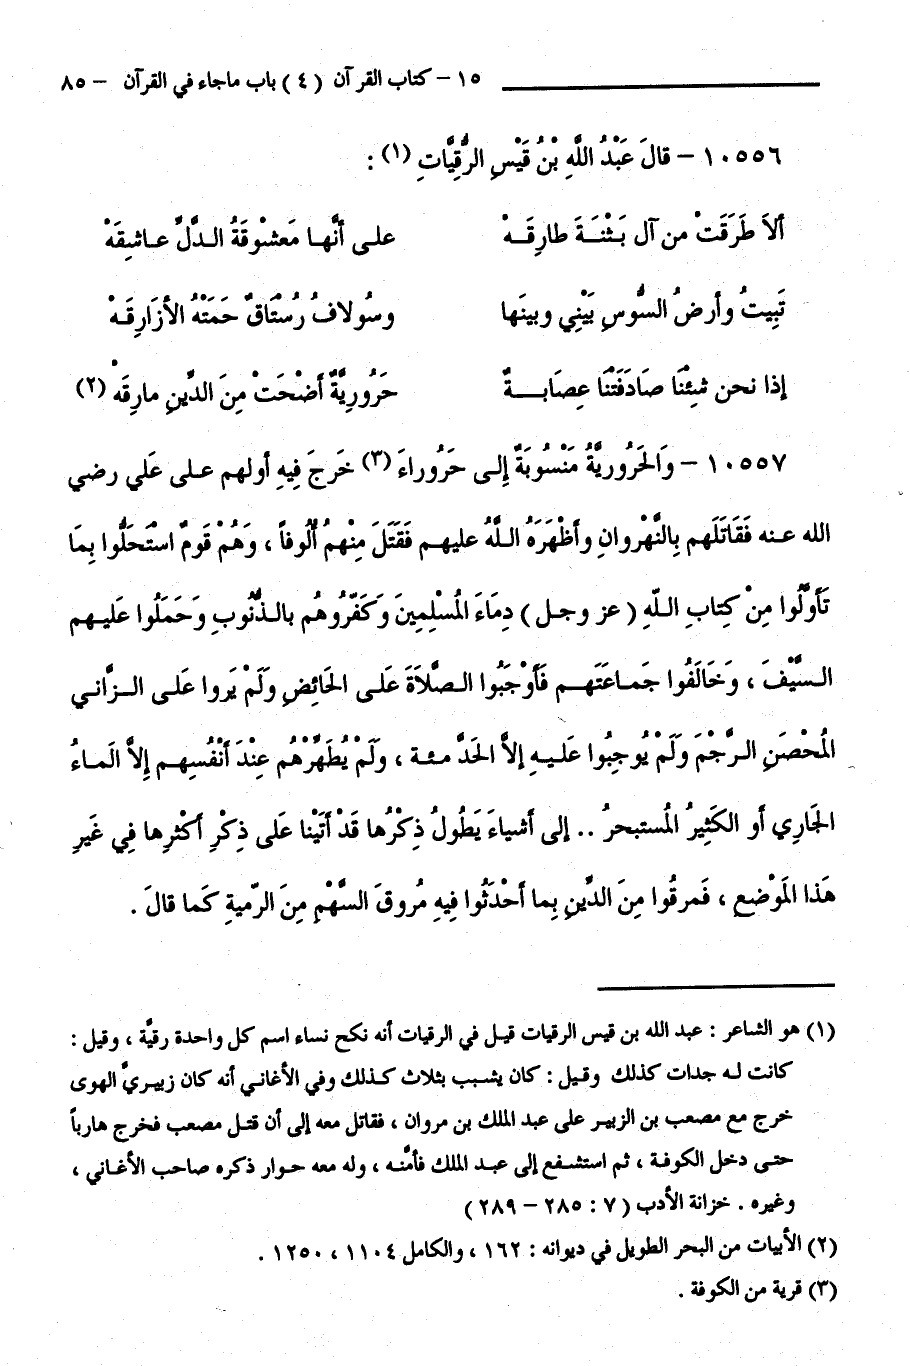 ١٥ – كتاب القرآن (٤) باب ماجاء في القرآن – ٨٥
١٠٥٥٦ – قالَ عَبْدُ اللَّهِ بْنُ قَيْسِ الرُّقِيَّاتِ (١) :
ألاَ طَرَقَتْ من آل بَثْنَةَ طارِقَـهْ على أنَّها مَعشْوقَةُ الدَّلِّ عاشِقَهْ
تَبِيتُ وأرضُ السُّوسِ بَيْنِي وبينَها وسُولافُ رُسْتَاقٌ حَمَتْهُ الأزَارِقَـهْ
إذا نحن شِئْنَا صَادَفَتْنَا عِصَابـةٌ حَرُورِيَّةٌ أضْحَتْ مِنَ الدِّينِ مارِقَهْ (٢)
١٠٥٥٧ – وَالحَرُورِيَّةُ مَنْسُوبَةٌ إلى حَرُوراءَ (٣) خَرَجَ فِيهِ أولهم على عَلَي رضي
الله عنه فَقَاتَلَهم بِالنَّهْروانِ وأظْهَرَهُ اللَّهُ عليهم فَقَتَلَ مِنْهُم أُلُوفاً ، وَهُمْ قَومٌ اسْتَحَلُّوا بِمَا
تَأوَّلُوا مِنْ كِتابِ اللَّهِ ( عز وجل ) دِمَاءَ المُسْلِمِينَ وَكَفَّرُوهُم بالذُّنُوبِ وَحَمَلُوا عَليهم
السَّيْفَ ، وَخَالَفُوا جَماعَتَهم فَأوْجَبُوا الصَّلاَةَ عَلَى الحَائِضِ وَلَمْ يَروا عَلَى الزَّاني
المُحْصَنِ الرَّجْمَ وَلَمْ يُوجِبُوا عَلَيهِ إلاَّ الحَدَّ مئة ، وَلَمْ يُطَهِّرْهُم عِنْدَ أنْفُسِهم إلاَّ الَماءُ
الجَارِي أو الكَثِيرُ المُستبحرُ .. إلى أشياءَ يَطُولُ ذِكْرُها قَدْ أتَيْنا عَلَى ذِكْرِ أكْثَرِها فِي غَيرِ
هَذا المَوْضعِ ، فَمرقُوا مِنَ الدِّينِ بِما أحْدَثُوا فِيهِ مُروقَ السَّهْمِ مِنَ الرّميةِ كَما قالَ .
(١) هو الشاعر : عبد الله بن قيس الرقيات قيل في الرقيات أنه نكح نساء اسم كل واحدة رقيَّة ، وقيل :
كانت له جدات كذلك وقيل : كان يشبب بثلاث كذلك وفي الأغاني أنه كان زبيريَّ الهوى
خرج مع مصعب بن الزبير على عبد الملك بن مروان ، فقاتل معه إلى أن قتل مصعب فخرج هارباً
حتى دخل الكوفة ، ثم استشفع إلى عبد الملك فأمَّنه ، وله معه حوار ذكره صاحب الأغاني ،
وغيره . خزانة الأدب ( ٧ : ٢٨٥ – ٢٨٩ )
(٢) الأبيات من البحر الطويل في ديوانه : ١٦٢ ، والكامل ١١٠٤ ، ١٢٥٠ .
(٣) قرية من الكوفة .